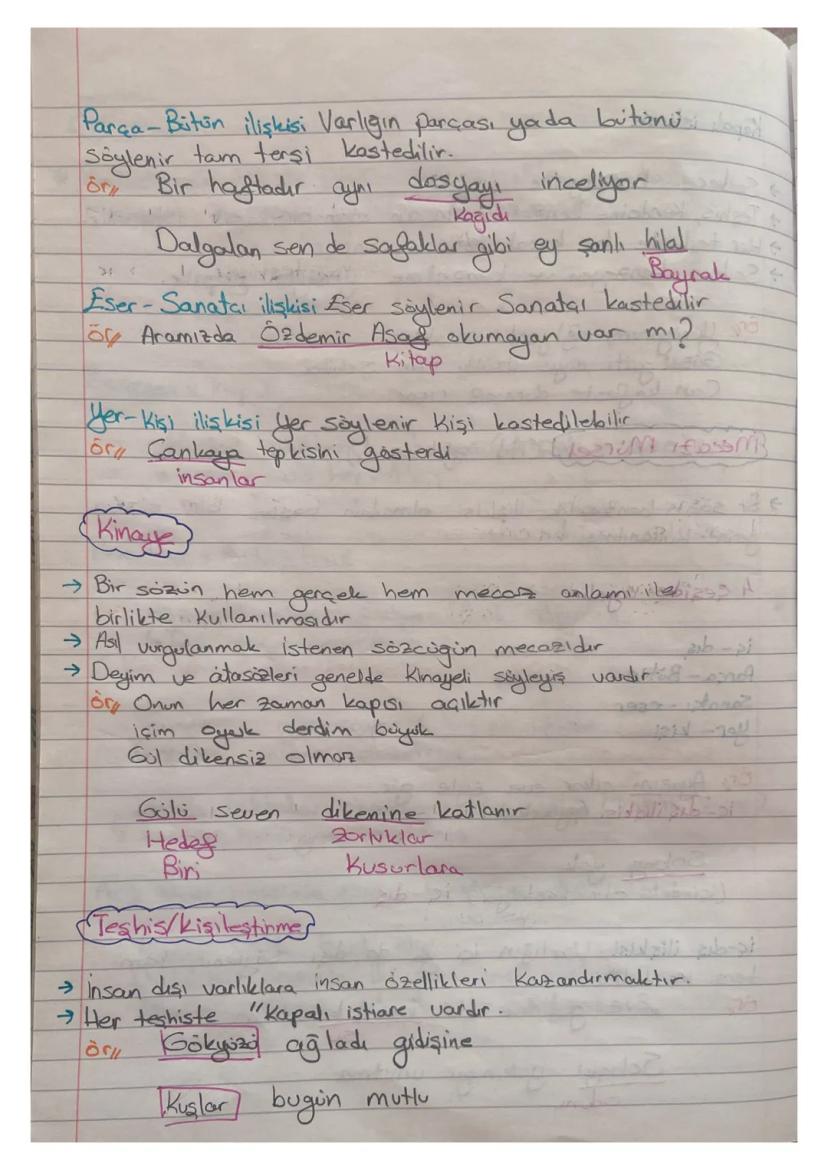 Parça-Bütün ilişkisi Varlığın parçası yada bütünü
söylenir tam tersi kastedilir.
ör// Bir haftadır aynı dosyayı inceliyor
Kağıdı
Dalgalan sen de şafaklar gibi ey şanlı hilal
Bayrak
Eser-Sanatçı ilişkisi Eser söylenir Sanatçı kastedilir
ör// Aramızda Özdemir Asaf okumayan var mı?
Kitap
Yer-Kişi ilişkisi Yer söylenir Kişi kastedilebilir
ör// Çankaya tepkisini gösterdi
insanlar
Kinaye
→ Bir sözün hem gerçek hem mecaz anlamı ile
birlikte kullanılmasıdır
→ Asıl vurgulanmak istenen sözcüğün mecazıdır
→ Deyim ve atasözleri genelde Kinayeli söyleyiş vardır
ör// Onun her zaman kapısı açıktır
içim oyuk derdim büyük
Gül dikensiz olmaz
Gülü seven dikenine katlanır
Hedef zorluklar
Biri Kusurlara
Teşhis/kişileştirme
→ İnsan dışı varlıklara insan özellikleri kazandırmaktır.
→ Her teşhiste "Kapalı istiare vardır.
ör// Gökyüzü ağladı gidişine
Kuşlar bugün mutlu